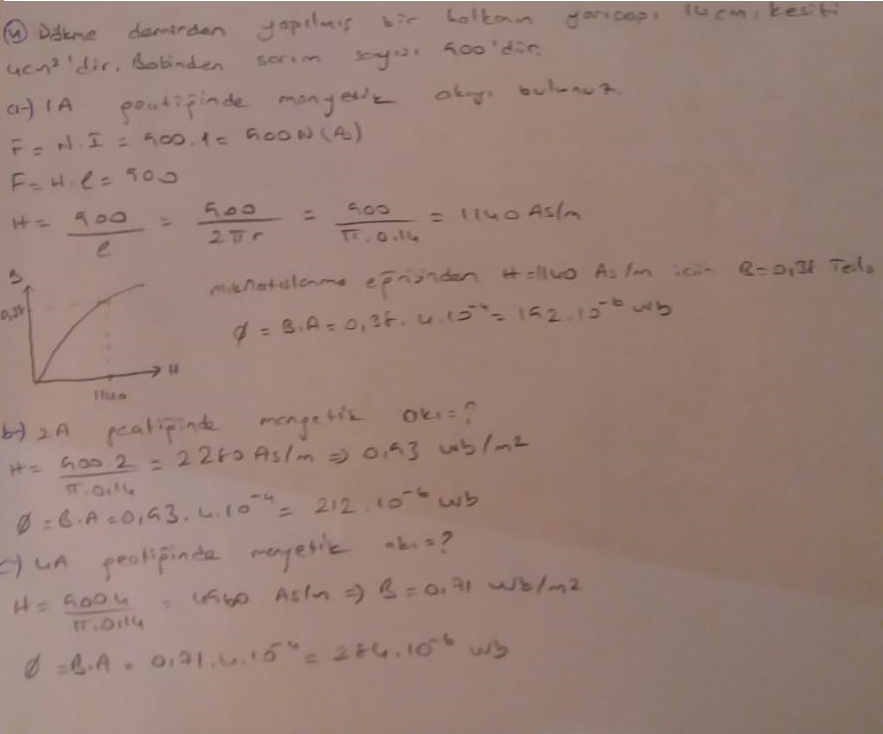 ④ Dökme demirden yapılmış bir halkanın yarıçapı 14cm, kesiti
4cm² 'dir. Bobinden sarım sayısı 500'dür.
a-) 1A geçtiğinde manyetik akıyı bulunuz.
F = N.I = 500.1 = 500 N(A)
F = H.l = 500
H = 500/l = 500/2πr = 500/π.0.14 = 1140 As/m
B
0,38
H
1140
mıknatıslanma eğrisinden H=1140 As/m için B=0,38 Tesla
Ø = B.A = 0,38.4.10⁻⁴ = 152.10⁻⁶ wb
b-) 2A geçtiğinde manyetik akı=?
H = 500.2/π.0.14 = 2280 As/m ⇒ 0,53 wb/m2
Ø = B.A = 0,53.4.10⁻⁴ = 212.10⁻⁶ wb
c-) 4A geçtiğinde manyetik akı=?
H = 500.4/π.0.14 = 4560 As/m ⇒ B = 0,71 wb/m2
Ø = B.A = 0,71.4.10⁻⁴ = 284.10⁻⁶ wb